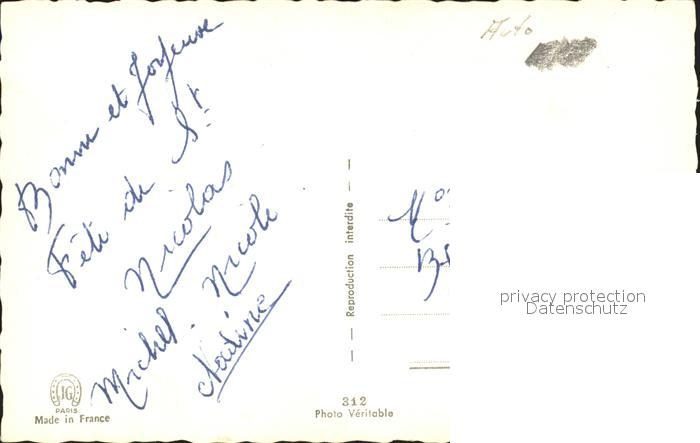 Auto
Bonne et Joyeuse
Fête de St
Nicolas
Michel - Nicole
Nadine
Reproduction interdite
privacy protection
Datenschutz
JG
PARIS
Made in France
312
Photo Véritable